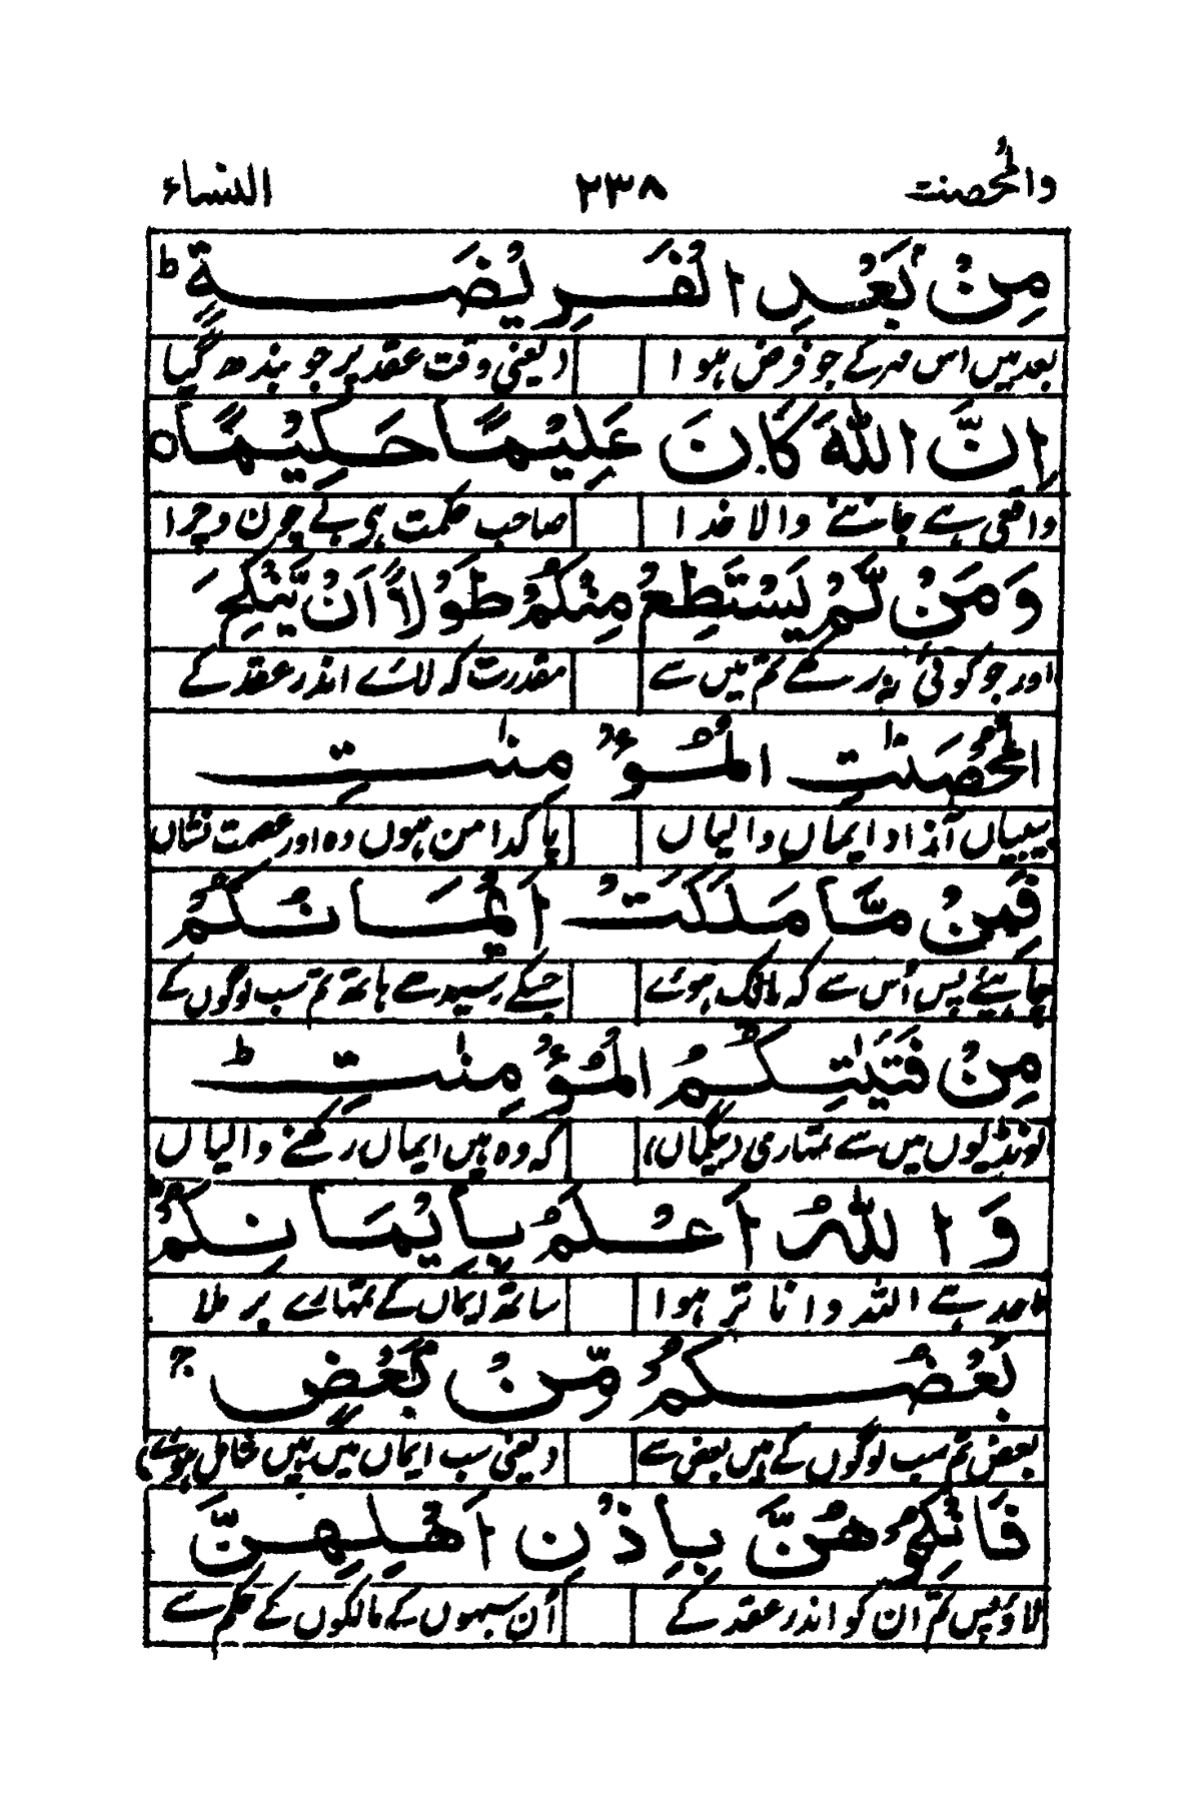 والمحصنت ٢٣٨ النساء
مِنْ بَعْدِ الْفَرِيْضَةِ ؕ
بعد میں اس مہر کے جو فرض ہوا (یعنی وقت عقد پر جو بندھ گیا
اِنَّ اللّٰهَ كَانَ عَلِيْمًا حَكِيْمًا ○
واقعی ہے جاننے والا خدا صاحب حکمت ہی بے چون وچرا
وَمَنْ لَّمْ يَسْتَطِعْ مِنْكُمْ طَوْلًا اَنْ يَّنْكِحَ
اور جو کوئی نہ رکھے تم میں سے مقدرت کہ لائے اندر عقد کے
الْمُحْصَنٰتِ الْمُؤْمِنٰتِ
بیبیاں آزاد ایماں والیاں پاکدامن ہوں وہ اور عصمت نشاں
فَمِنْ مَّا مَلَكَتْ اَيْمَانُكُمْ
چاہئے پس اُس سے کہ مالک ہوئے جسکے سیدھے ہاتھ تم سب لوگوں کے
مِنْ فَتَيٰتِكُمُ الْمُؤْمِنٰتِ ؕ
لونڈیوں میں سے تمہاری (بیگماں) کہ وہ ہیں ایماں رکھنے والیاں
وَاللّٰهُ اَعْلَمُ بِاِيْمَانِكُمْ ؕ
ہے اللہ دانا تر ہوا ساتھ ایماں کے تمہارے بر ملا
بَعْضُكُمْ مِّنْۢ بَعْضٍ ۚ
بعض تم سب لوگوں کے ہیں بعض سے (یعنی سب ایماں میں ہیں شامل ہوئے)
فَانْكِحُوْهُنَّ بِاِذْنِ اَهْلِهِنَّ
لاؤ پس تم ان کو اندر عقد کے اُن سبھوں کے مالکوں کے حکم سے